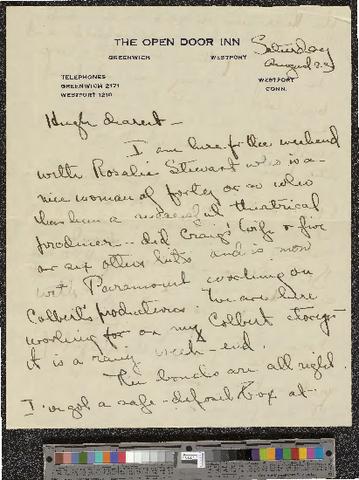 THE OPEN DOOR INN
GREENWICH WESTPORT
Saturday
August 23
TELEPHONES
GREENWICH 2171
WESTPORT 1210
WESTPORT
CONN.
Hugh dearest —
I am here for the weekend
with Rosalie Stewart who is a
nice woman of forty or so who
has been a successful theatrical
producer -- did Craig's Wife & five
or six other hits and is now
with Paramount working on
Colbert's productions. We are here
working for on my Colbert story.
It is a rainy week-end.
The bonds are all right.
I've got a safe-deposit box at